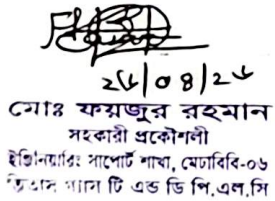 মোঃ ফয়জুর রহমান
সহকারী প্রকৌশলী
ইঞ্জিনিয়ারিং সাপোর্ট শাখা, মেঢাবিবি-০৬
তিতাস গ্যাস টি এন্ড ডি পি.এল.সি